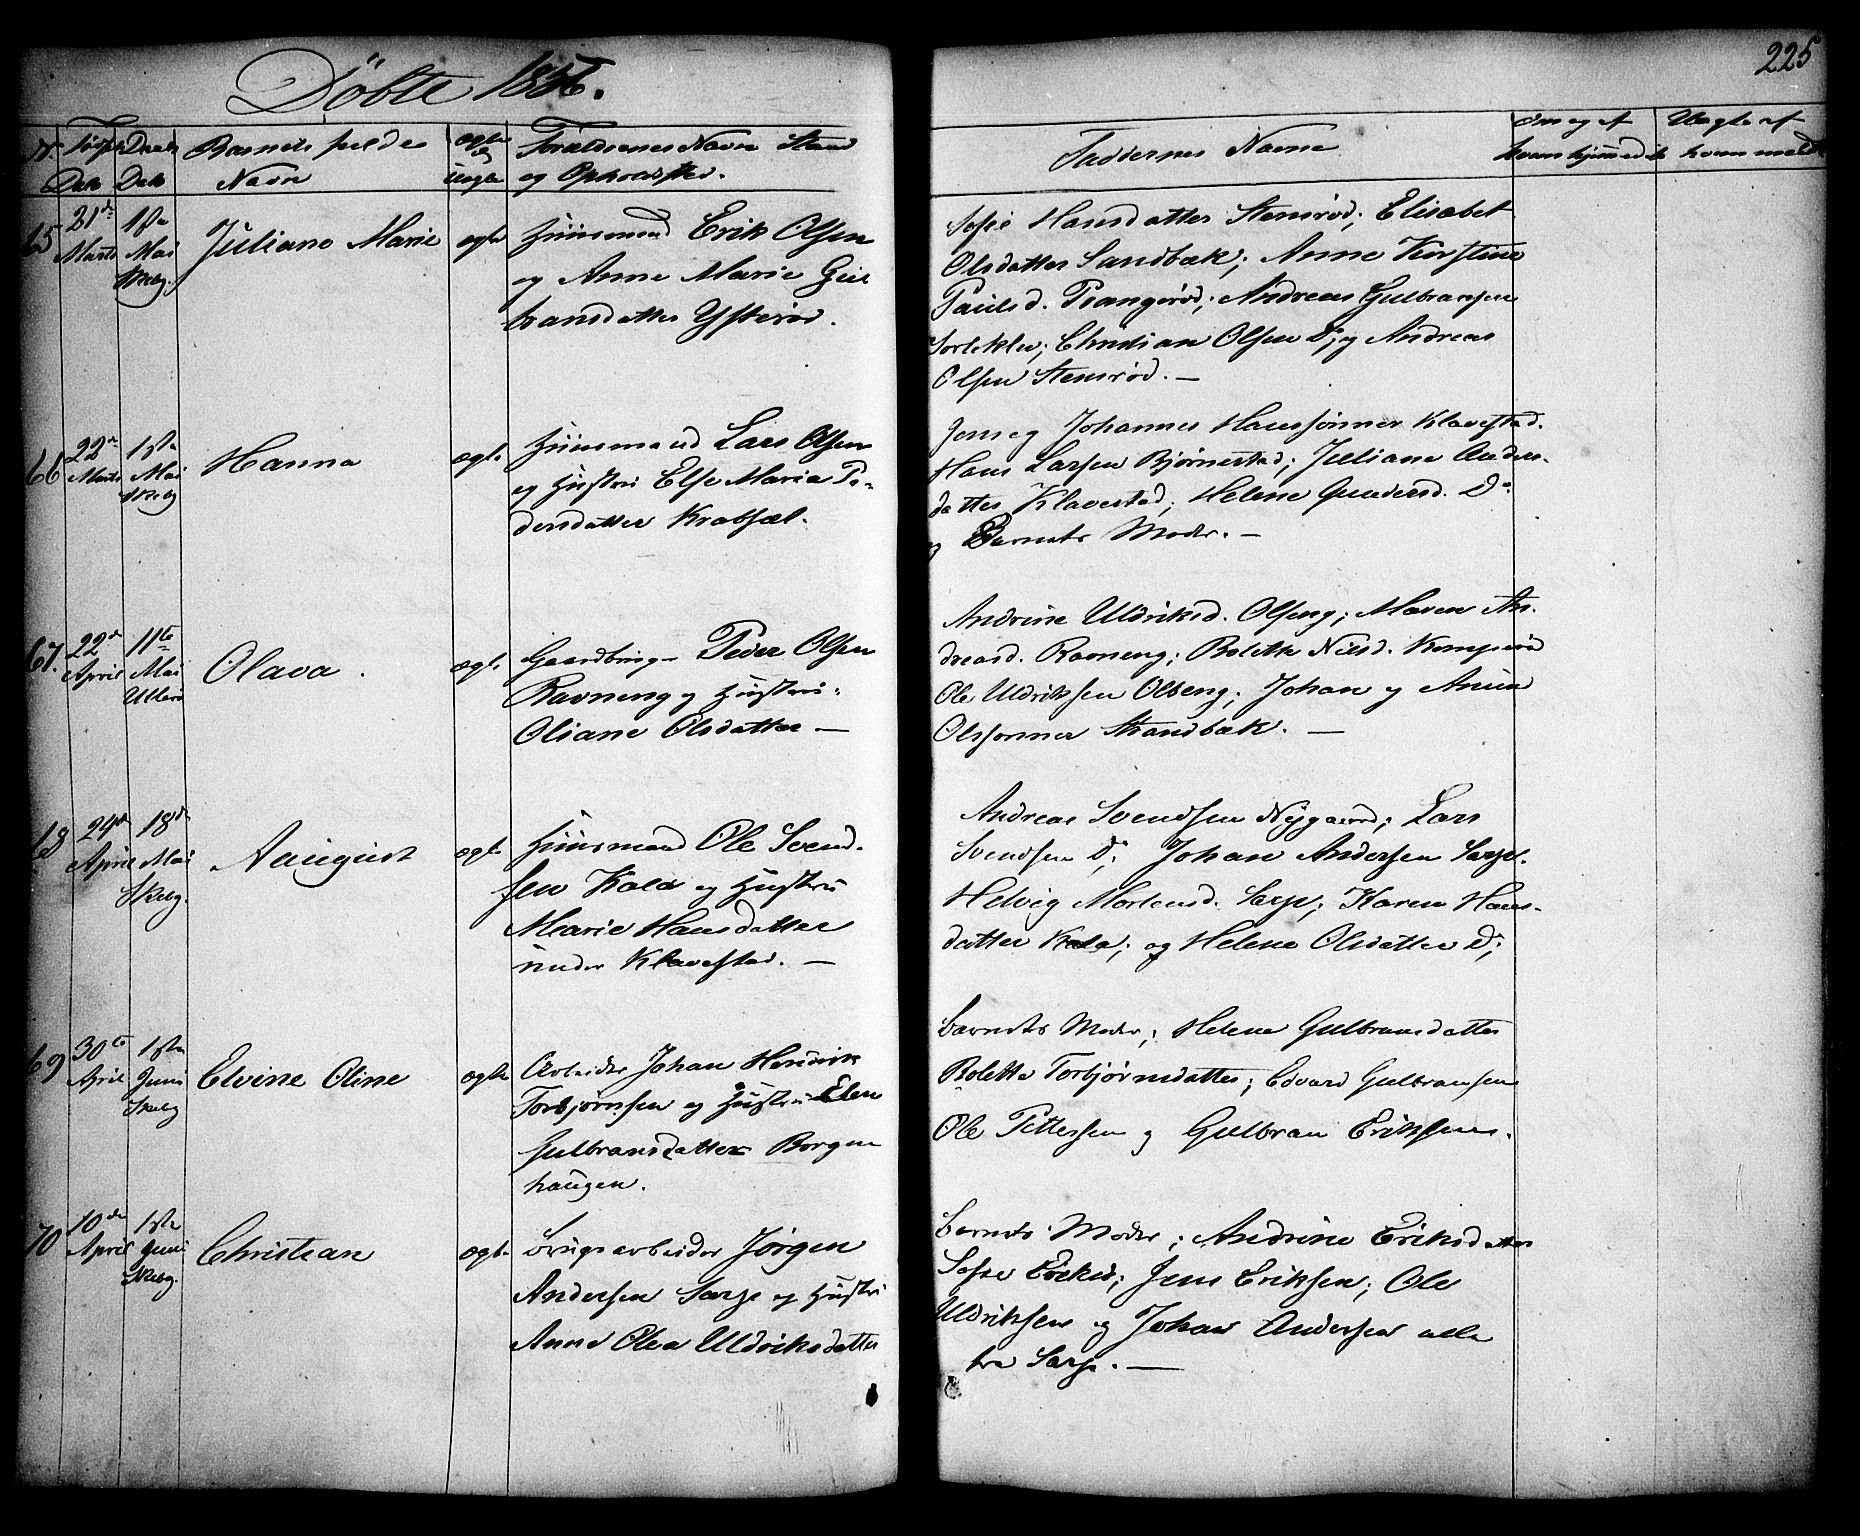 Döbte 1856.
225
N.
Döbts
Dato
Dato
Barnets fulde
Navn
ægte
og
uægte
Forældrenes Navn Stand
og Opholdsted.
Faddernes Navne
65
21de
Marts
1ste
Mai
Skebg.
Juliane Marie
ægte
Huusmand Erik Olsen
og Anne Marie Gul
bransdatter Ysterød.
Sofie Hansdatter Stensrød; Elisabet
Olsdatter Sandbæk; Anne Kirstine
Paulsd. Prangerød; Andreas Gulbransen
Christian Olsen Do; og Andreas
Olsen Stensrød. —
66
22de
Marts
1ste
Mai
Skebg
Hanna
ægte
Huusmand Lars Olsen
og Hustru Else Maria Pe-
dersdatter Krabsæl.
Jens og Johannes Hanssønner Klavestad.
Hans Larsen Bjørnestad; Juliane Anders-
datter Klavestad; Helene Gundersd. Do
og Barnets Moder. —
67.
22de
April
11te
Mai
Ullerø
Olava.
ægte
Gaardbruger Peder Olsen
Ravneng og Hustru
Oliane Olsdatter —
Andrine Uldriksd. Olseng; Maren An-
dreasd. Ravneng; Bolette Nilsd. Kamperød
Ole Uldriksen Olseng; Johan og Anund
Olssønner Strandbæk. —
68
24de
April
18de
Mai
Skebg.
August
ægte
Huusmand Ole Svend-
sen Kala og Hustru
Marie Hansdatter
under Klavestad. —
Andreas Svendsen Nygaard; Lars
Svendsen Do; Johan Andersen Sarp.
Helvig Mortensd. Sarp; Karen Hans-
datter Kala; og Helene Olsdatter Do;
69
30te
April
1ste
Juni
Skebg
Elvine Oline
ægte
Arbeider Johan Hendrik
Torbjørnsen og Hustru Elen
Gulbransdatter Borgen
haugen.
Barnets Moder; Helene Gulbransdatter
Bolette Torbjørnsdatter; Edvard Gulbransen
Ole Pettersen og Gulbran Eriksen.
70
10de
April
1ste
Juni
Skebg.
Christian
ægte
Brugsarbeider Jørgen
Andersen Sarp og Hustru
Anne Olea Uldriksdatter
Barnets Moder; Andrine Eriksdatter
Sofie Eriksd; Jens Eriksen; Ole
Uldriksen og Johan Andersen alle
fra Sarp. —